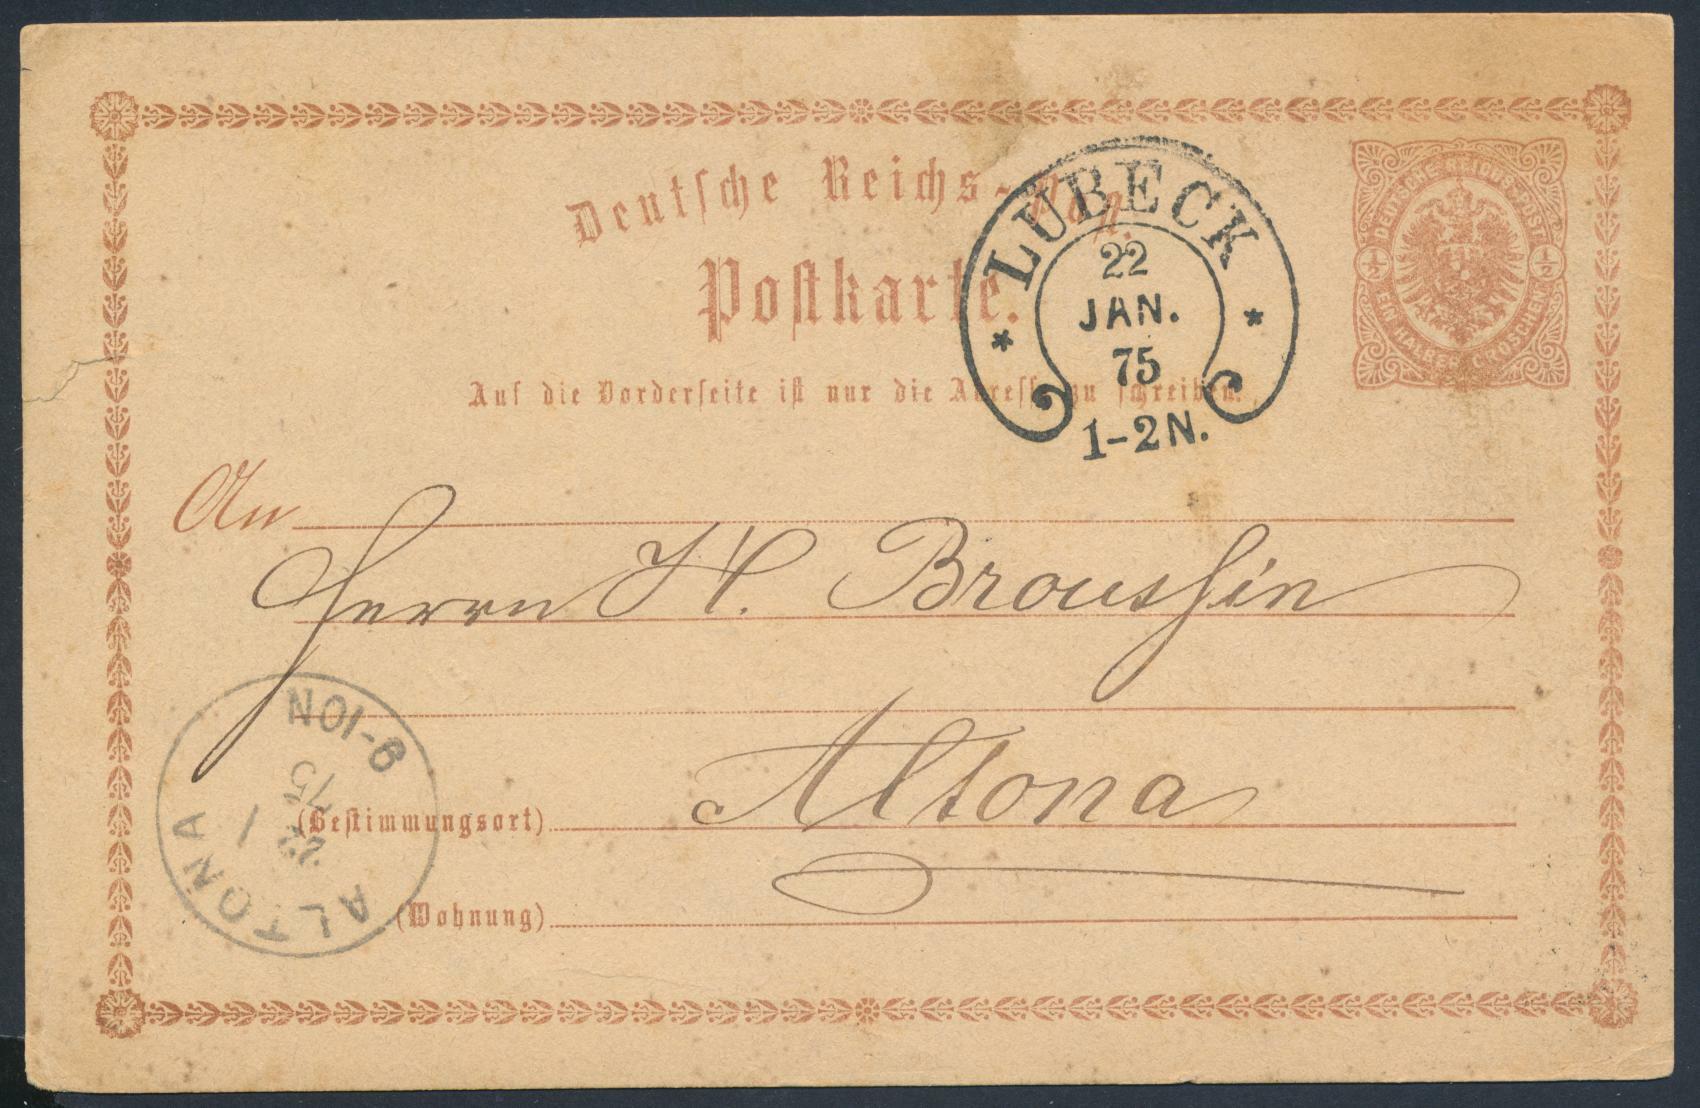 Deutsche Reichs-Post.
Postkarte.
Auf die Vorderseite ist nur die Adresse zu schreiben.
DEUTSCHE REICHS-POST
½ ½
EIN HALBER GROSCHEN
* LÜBECK *
22
JAN.
75
1-2N.
An
Herrn H. Brousshin
Altona
(Bestimmungsort)
(Wohnung)
ALTONA
22
1
75
9-10N